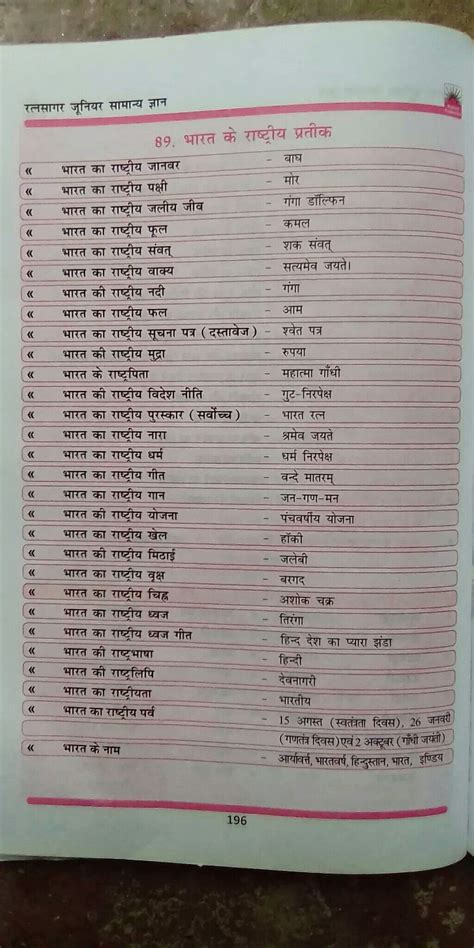 रत्नसागर जूनियर सामान्य ज्ञान
89. भारत के राष्ट्रीय प्रतीक
« भारत का राष्ट्रीय जानवर - बाघ
« भारत का राष्ट्रीय पक्षी - मोर
« भारत का राष्ट्रीय जलीय जीव - गंगा डॉल्फिन
« भारत का राष्ट्रीय फूल - कमल
« भारत का राष्ट्रीय संवत् - शक संवत्
« भारत का राष्ट्रीय वाक्य - सत्यमेव जयते।
« भारत की राष्ट्रीय नदी - गंगा
« भारत का राष्ट्रीय फल - आम
« भारत का राष्ट्रीय सूचना पत्र ( दस्तावेज ) - श्वेत पत्र
« भारत की राष्ट्रीय मुद्रा - रुपया
« भारत के राष्ट्रपिता - महात्मा गाँधी
« भारत की राष्ट्रीय विदेश नीति - गुट-निरपेक्ष
« भारत का राष्ट्रीय पुरस्कार ( सर्वोच्च ) - भारत रत्न
« भारत का राष्ट्रीय नारा - श्रमेव जयते
« भारत का राष्ट्रीय धर्म - धर्म निरपेक्ष
« भारत का राष्ट्रीय गीत - वन्दे मातरम्
« भारत का राष्ट्रीय गान - जन-गण-मन
« भारत की राष्ट्रीय योजना - पंचवर्षीय योजना
« भारत का राष्ट्रीय खेल - हॉकी
« भारत की राष्ट्रीय मिठाई - जलेबी
« भारत का राष्ट्रीय वृक्ष - बरगद
« भारत का राष्ट्रीय चिह्न - अशोक चक्र
« भारत का राष्ट्रीय ध्वज - तिरंगा
« भारत का राष्ट्रीय ध्वज गीत - हिन्द देश का प्यारा झंडा
« भारत की राष्ट्रभाषा - हिन्दी
« भारत की राष्ट्रलिपि - देवनागरी
« भारत का राष्ट्रीयता - भारतीय
« भारत का राष्ट्रीय पर्व - 15 अगस्त (स्वतंत्रता दिवस), 26 जनवरी
(गणतंत्र दिवस) एवं 2 अक्टूबर (गाँधी जयंती)
« भारत के नाम - आर्यावर्त्त, भारतवर्ष, हिन्दुस्तान, भारत, इण्डिय
196